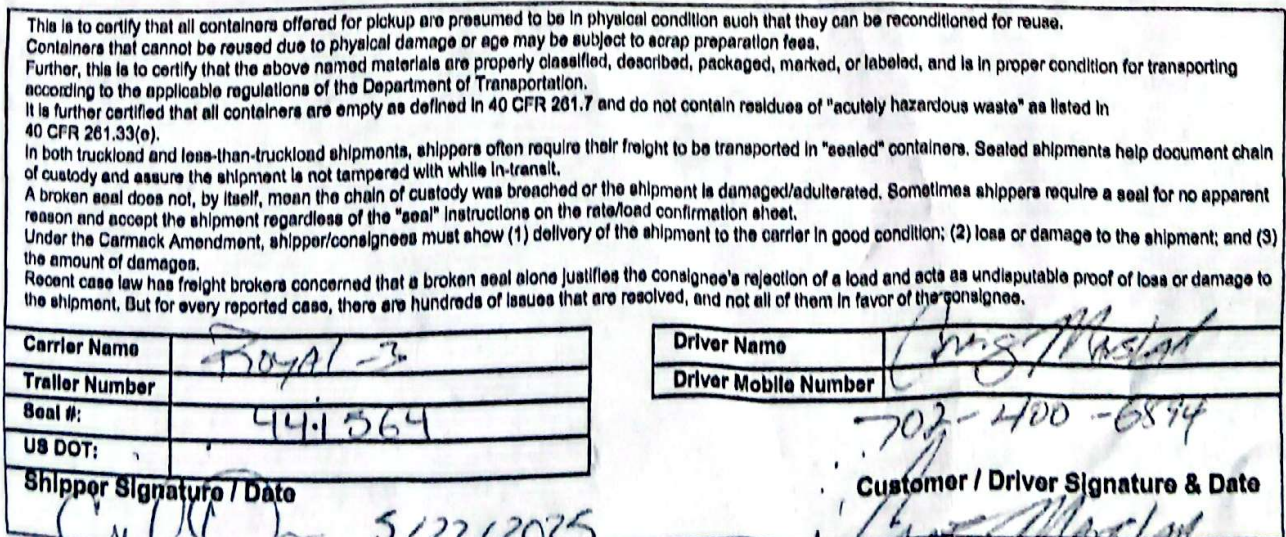 This is to certify that all containers offered for pickup are presumed to be in physical condition such that they can be reconditioned for reuse.
Containers that cannot be reused due to physical damage or age may be subject to scrap preparation fees.
Further, this is to certify that the above named materials are properly classified, described, packaged, marked, or labeled, and is in proper condition for transporting
according to the applicable regulations of the Department of Transportation.
It is further certified that all containers are empty as defined in 40 CFR 261.7 and do not contain residues of "acutely hazardous waste" as listed in
40 CFR 261.33(e).
In both truckload and less-than-truckload shipments, shippers often require their freight to be transported in "sealed" containers. Sealed shipments help document chain
of custody and assure the shipment is not tampered with while in-transit.
A broken seal does not, by itself, mean the chain of custody was breached or the shipment is damaged/adulterated. Sometimes shippers require a seal for no apparent
reason and accept the shipment regardless of the "seal" instructions on the rate/load confirmation sheet.
Under the Carmack Amendment, shipper/consignees must show (1) delivery of the shipment to the carrier in good condition; (2) loss or damage to the shipment; and (3)
the amount of damages.
Recent case law has freight brokers concerned that a broken seal alone justifies the consignee's rejection of a load and acts as undisputable proof of loss or damage to
the shipment. But for every reported case, there are hundreds of issues that are resolved, and not all of them in favor of the consignee.
Carrier Name Royal-3
Trailer Number
Seal #: 441564
US DOT:
Driver Name
Driver Mobile Number
702-400-6894
Shipper Signature / Date
5/22/2025
Customer / Driver Signature & Date